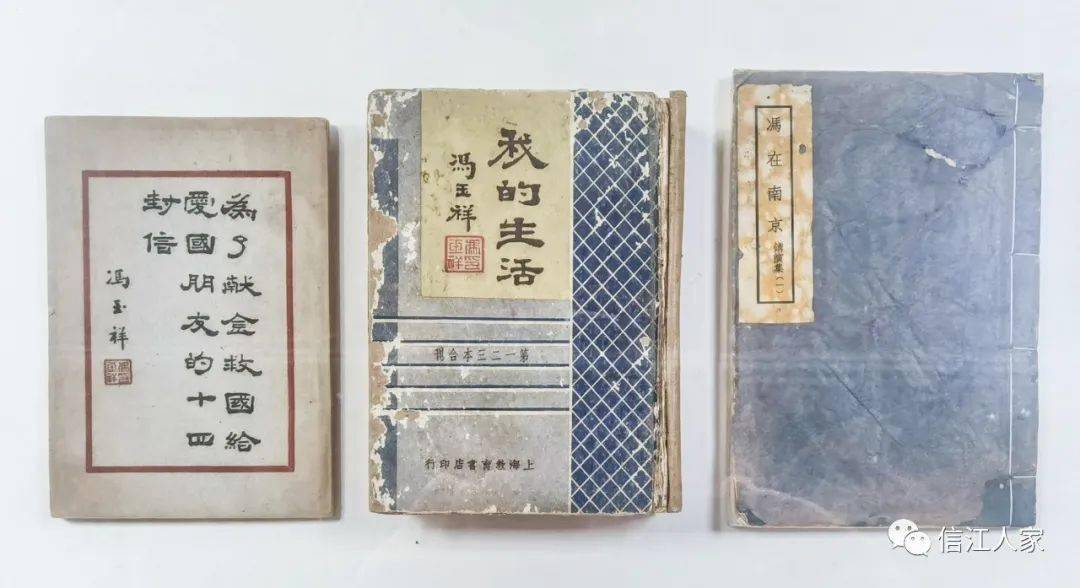 為了献金救國給
愛國朋友的十四
封信
馮玉祥
我的生活
馮玉祥
馮印玉祥
第一二三本合刊
上海教育書店印行
馮在南京 講演集(一)
信江人家